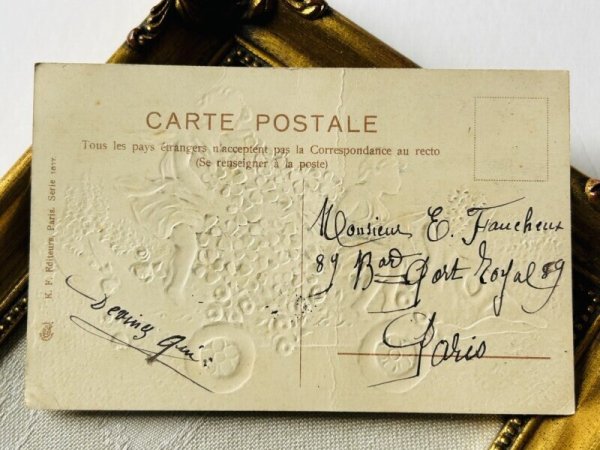 CARTE POSTALE
Tous les pays étrangers n'acceptent pas la Correspondance au recto
(Se renseigner à la poste)
K. F. Editeurs, Paris, Serie 1617.
Monsieur E. Faucheux
89 Bard Port Royal 89
Paris
Devinez Qui?